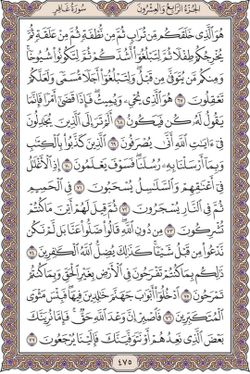 سُورَةُ غَافِرٍ
الجُزْءُ الرَّابِعُ وَالعِشْرُونَ
هُوَ الَّذِي خَلَقَكُم مِّن تُرَابٍ ثُمَّ مِن نُّطْفَةٍ ثُمَّ مِنْ عَلَقَةٍ ثُمَّ
يُخْرِجُكُمْ طِفْلًا ثُمَّ لِتَبْلُغُوا أَشُدَّكُمْ ثُمَّ لِتَكُونُوا شُيُوخًا
وَمِنكُم مَّن يُتَوَفَّىٰ مِن قَبْلُ وَلِتَبْلُغُوا أَجَلًا مُّسَمًّى وَلَعَلَّكُمْ
تَعْقِلُونَ ٦٧ هُوَ الَّذِي يُحْيِي وَيُمِيتُ فَإِذَا قَضَىٰ أَمْرًا فَإِنَّمَا
يَقُولُ لَهُ كُن فَيَكُونُ ٦٨ أَلَمْ تَرَ إِلَى الَّذِينَ يُجَادِلُونَ
فِي آيَاتِ اللَّهِ أَنَّىٰ يُصْرَفُونَ ٦٩ الَّذِينَ كَذَّبُوا بِالْكِتَابِ
وَبِمَا أَرْسَلْنَا بِهِ رُسُلَنَا فَسَوْفَ يَعْلَمُونَ ٧٠ إِذِ الْأَغْلَالُ
فِي أَعْنَاقِهِمْ وَالسَّلَاسِلُ يُسْحَبُونَ ٧١ فِي الْحَمِيمِ
ثُمَّ فِي النَّارِ يُسْجَرُونَ ٧٢ ثُمَّ قِيلَ لَهُمْ أَيْنَ مَا كُنتُمْ
تُشْرِكُونَ ٧٣ مِن دُونِ اللَّهِ قَالُوا ضَلُّوا عَنَّا بَل لَّمْ نَكُن
نَّدْعُوا مِن قَبْلُ شَيْئًا كَذَٰلِكَ يُضِلُّ اللَّهُ الْكَافِرِينَ ٧٤
ذَٰلِكُم بِمَا كُنتُمْ تَفْرَحُونَ فِي الْأَرْضِ بِغَيْرِ الْحَقِّ وَبِمَا كُنتُمْ
تَمْرَحُونَ ٧٥ ادْخُلُوا أَبْوَابَ جَهَنَّمَ خَالِدِينَ فِيهَا فَبِئْسَ مَثْوَى
الْمُتَكَبِّرِينَ ٧٦ فَاصْبِرْ إِنَّ وَعْدَ اللَّهِ حَقٌّ فَإِمَّا نُرِيَنَّكَ
بَعْضَ الَّذِي نَعِدُهُمْ أَوْ نَتَوَفَّيَنَّكَ فَإِلَيْنَا يُرْجَعُونَ ٧٧
٤٧٥